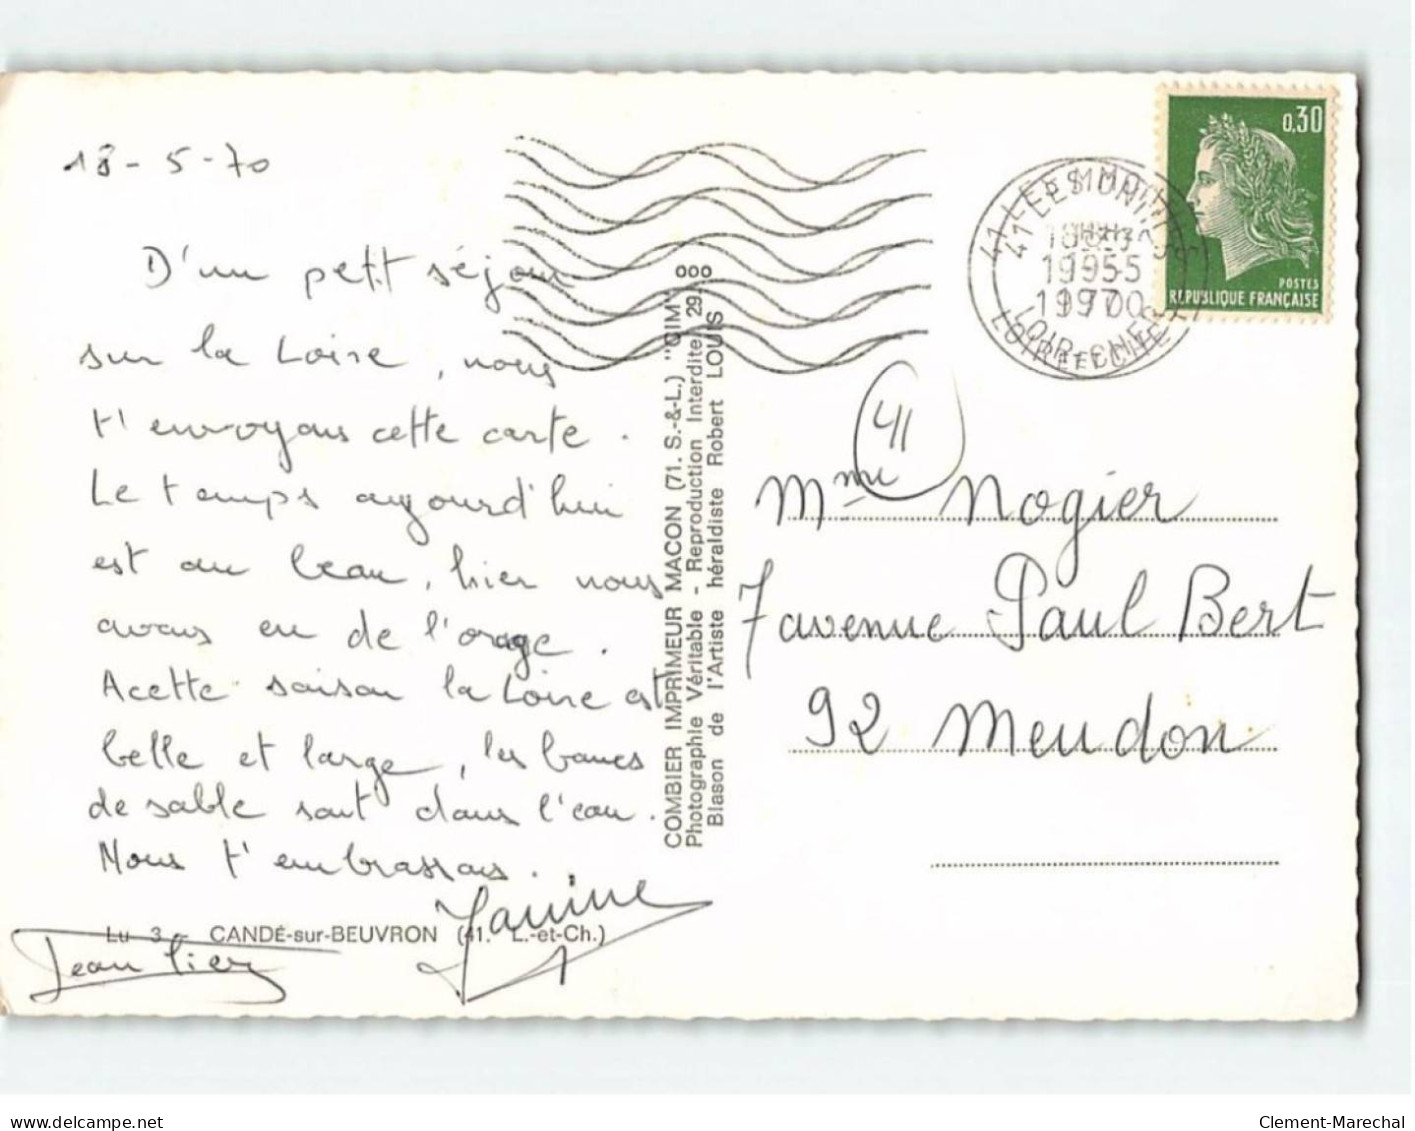 18-5-70
D'un petit séjour
sur la Loire, nous
t'envoyons cette carte.
Le temps aujourd'hui
est au beau, hier nous
avons eu de l'orage.
A cette saison la Loire est
belle et large, les bancs
de sable sont dans l'eau.
Nous t'embrassons.
Janine
Lu 3 - CANDÉ-sur-BEUVRON (41. L.-et-Ch.)
ooo
COMBIER IMPRIMEUR MACON (71. S.-&-L.) "CIM"
Photographie Véritable - Reproduction Interdite 29
Blason de l'Artiste héraldiste Robert LOUIS
0,30
POSTES
REPUBLIQUE FRANÇAISE
41
Mme Nogier
7 avenue Paul Bert
92 Meudon
delcampe.net
Clement-Marechal